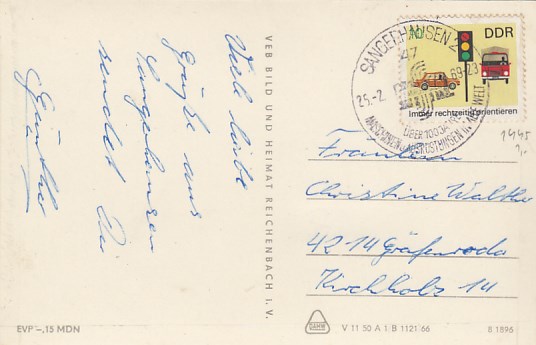 Viele liebe
Grüße aus
Sangerhausen
sendet Dir
Günther
VEB BILD UND HEIMAT REICHENBACH I. V.
DDR
Immer rechtzeitig orientieren
SANGERHAUSEN 2
47
25.-2. 69-23
ÜBER 100 JAHRE
MASCHINEN AUSRÜSTUNGEN IN ALLE WELT
1445
Fräulein
Christine Walther
4214 Gräfenroda
Kirchholz 14
EVP -,15 MDN
V 11 50 A 1 B 1121 66
8 1896